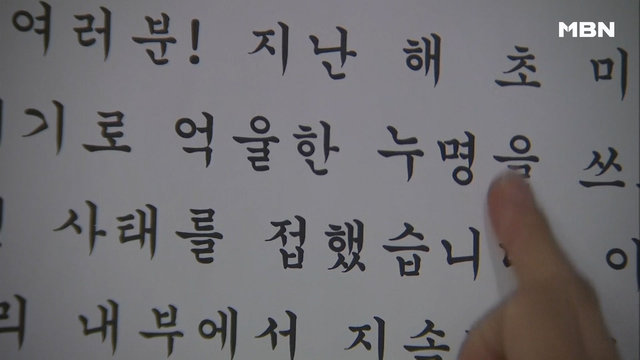 MBN
여러분! 지난 해 초 미
기로 억울한 누명을 쓰
사태를 접했습니
내부에서 지속